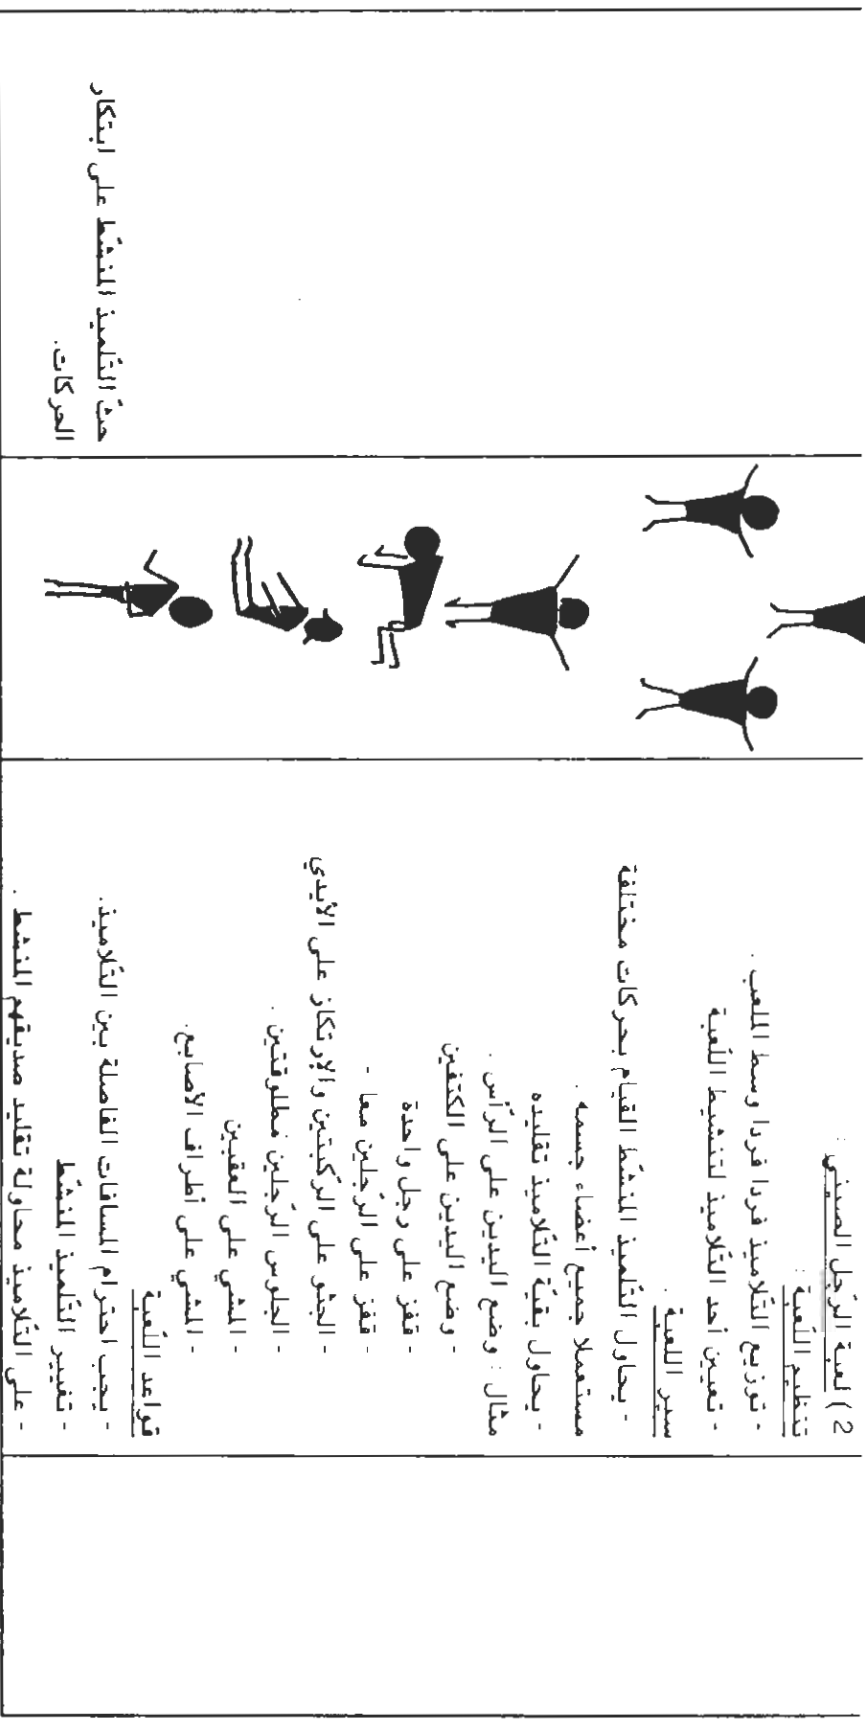 2) لعبة الرّجل الصيني :
تنظيم اللّعبة :
- توزيع التّلاميذ فردا فردا وسط الملعب .
- تعيين أحد التّلاميذ لتنشيط اللّعبة
سير اللعبة .
- يحاول التّلميذ المنشّط القيام بحركات مختلفة
مستعملا جميع أعضاء جسمه .
- يحاول بقيّة التّلاميذ تقليده
مثال : وضع اليدين على الرّأس .
- وضع اليدين على الكتفين
- قفز على رجل واحدة
- قفز على الرّجلين معا -
- الجثو على الرّكبتين والإرتكاز على الأيدي
- الجلوس الرّجلين مطلوقتين .
- المشي على العقبين
- المشي على أطراف الأصابع.
قواعد اللّعبة
- يجب احترام المسافات الفاصلة بين التّلاميذ.
- تغيير التّلميذ المنشّط
- على التّلاميذ محاولة تقليد صديقهم المنشط .
حثّ التّلميذ المنشّط على ابتكار
الحركات.